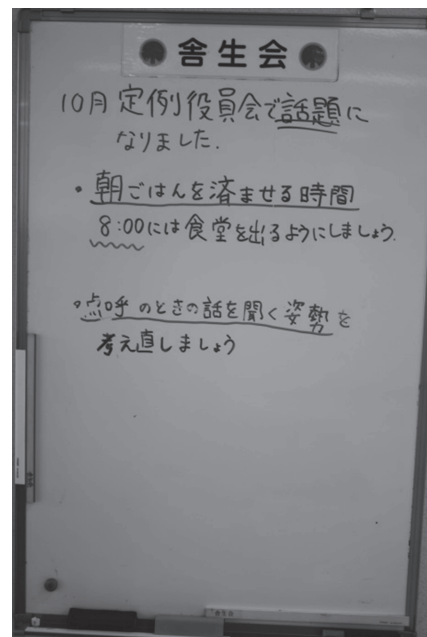 舎生会
10月定例役員会で話題に
なりました.
・朝ごはんを済ませる時間
8:00には食堂を出るようにしましょう.
・点呼のときの話を聞く姿勢を
考え直しましょう